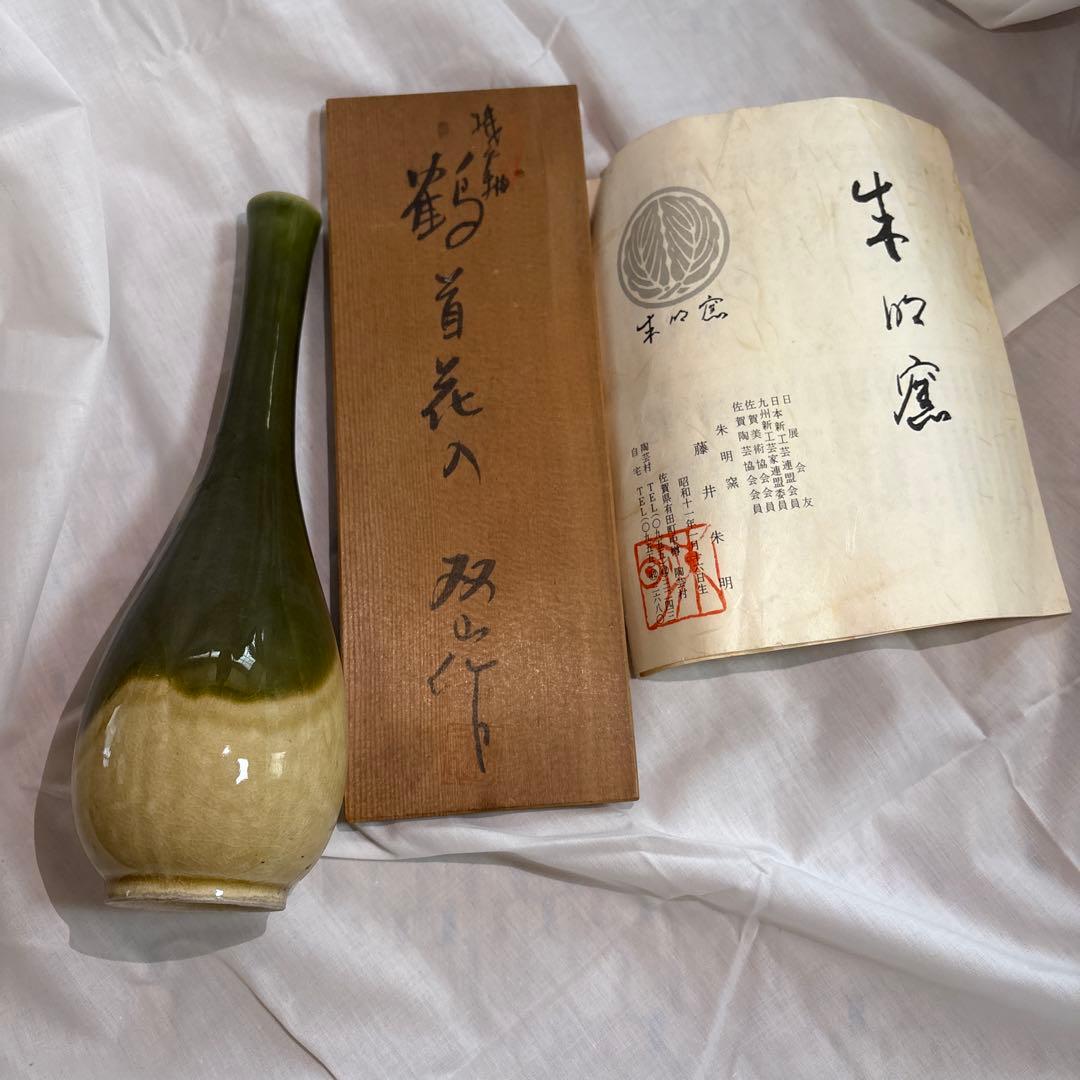 鶴首花入
双山作
朱明窯
朱明窯
日展会友
日本新工芸連盟会員
九州新工芸家連盟委員
佐賀美術協会会員
佐賀陶芸協会会員
朱明窯
藤井朱明
昭和十一年一月十六日生
佐賀県有田町
陶芸村
陶芸村 TEL
自宅 TEL